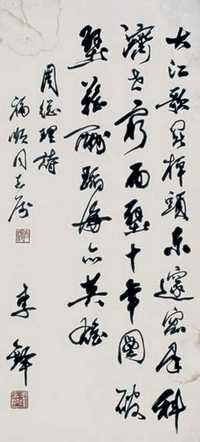 大江歌罷掉頭东邃密群科
濟世窮面壁十年圖破
壁難酬蹈海亦英雄
周總理詩
福順同志属
李鐸